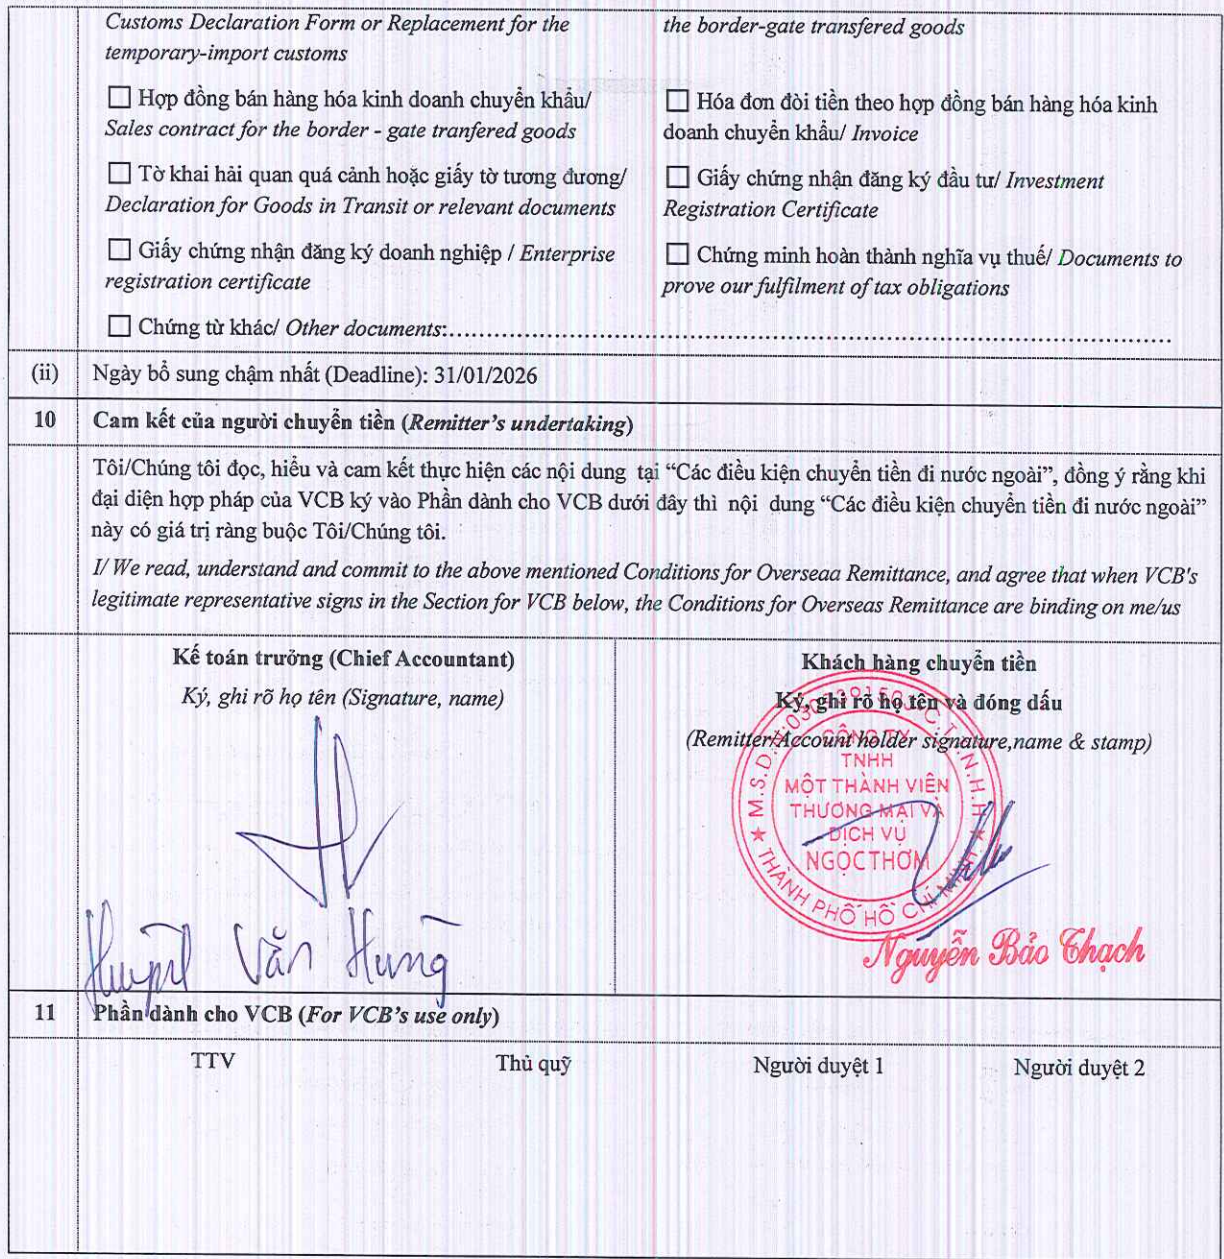 Customs Declaration Form or Replacement for the
temporary-import customs
the border-gate transfered goods
☐ Hợp đồng bán hàng hóa kinh doanh chuyển khẩu/
Sales contract for the border - gate tranfered goods
☐ Hóa đơn đòi tiền theo hợp đồng bán hàng hóa kinh
doanh chuyển khẩu/ Invoice
☐ Tờ khai hải quan quá cảnh hoặc giấy tờ tương đương/
Declaration for Goods in Transit or relevant documents
☐ Giấy chứng nhận đăng ký đầu tư/ Investment
Registration Certificate
☐ Giấy chứng nhận đăng ký doanh nghiệp / Enterprise
registration certificate
☐ Chứng minh hoàn thành nghĩa vụ thuế/ Documents to
prove our fulfilment of tax obligations
☐ Chứng từ khác/ Other documents:..........................................................................................
(ii) Ngày bổ sung chậm nhất (Deadline): 31/01/2026
10 Cam kết của người chuyển tiền (Remitter's undertaking)
Tôi/Chúng tôi đọc, hiểu và cam kết thực hiện các nội dung tại “Các điều kiện chuyển tiền đi nước ngoài”, đồng ý rằng khi
đại diện hợp pháp của VCB ký vào Phần dành cho VCB dưới đây thì nội dung “Các điều kiện chuyển tiền đi nước ngoài”
này có giá trị ràng buộc Tôi/Chúng tôi.
I/ We read, understand and commit to the above mentioned Conditions for Overseaa Remittance, and agree that when VCB's
legitimate representative signs in the Section for VCB below, the Conditions for Overseas Remittance are binding on me/us
Kế toán trưởng (Chief Accountant)
Ký, ghi rõ họ tên (Signature, name)
Khách hàng chuyển tiền
Ký, ghi rõ họ tên và đóng dấu
(Remitter/Account holder signature,name & stamp)
M.S.D.N C.T.T.N.H.H
CÔNG TY
TNHH
MỘT THÀNH VIÊN
THƯƠNG MẠI VÀ
DỊCH VỤ
NGỌC THƠM
THÀNH PHỐ HỒ CHÍ MINH
Văn Hưng
Nguyễn Bảo Thạch
11 Phần dành cho VCB (For VCB's use only)
TTV Thủ quỹ Người duyệt 1 Người duyệt 2